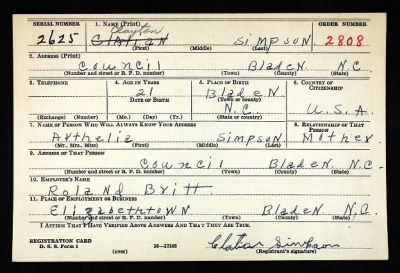 SERIAL NUMBER 1. NAME (Print) ORDER NUMBER
Clayton
2625 Clatian Simpson 2808
(First) (Middle) (Last)
2. ADDRESS (Print)
Council Bladen N.C.
(Number and street or R. F. D. number) (Town) (County) (State)
3. TELEPHONE 4. AGE IN YEARS 5. PLACE OF BIRTH 6. COUNTRY OF CITIZENSHIP
21 Bladen
DATE OF BIRTH (Town or county)
N.C. U.S.A
(Exchange) (Number) (Mo.) (Day) (Yr.) (State or country)
7. NAME OF PERSON WHO WILL ALWAYS KNOW YOUR ADDRESS 8. RELATIONSHIP OF THAT PERSON
Arthelia Simpson Mother
(Mr., Mrs., Miss) (First) (Middle) (Last)
9. ADDRESS OF THAT PERSON
Council Bladen N.C.
(Number and street or R. F. D. number) (Town) (County) (State)
10. EMPLOYER'S NAME
Roland Britt
11. PLACE OF EMPLOYMENT OR BUSINESS
Elizabethtown Bladen N.C.
(Number and street or R. F. D. number) (Town) (County) (State)
I AFFIRM THAT I HAVE VERIFIED ABOVE ANSWERS AND THAT THEY ARE TRUE.
REGISTRATION CARD
D. S. S. Form 1 (over) 16—17105 Clatian Simpson
(Registrant's signature)